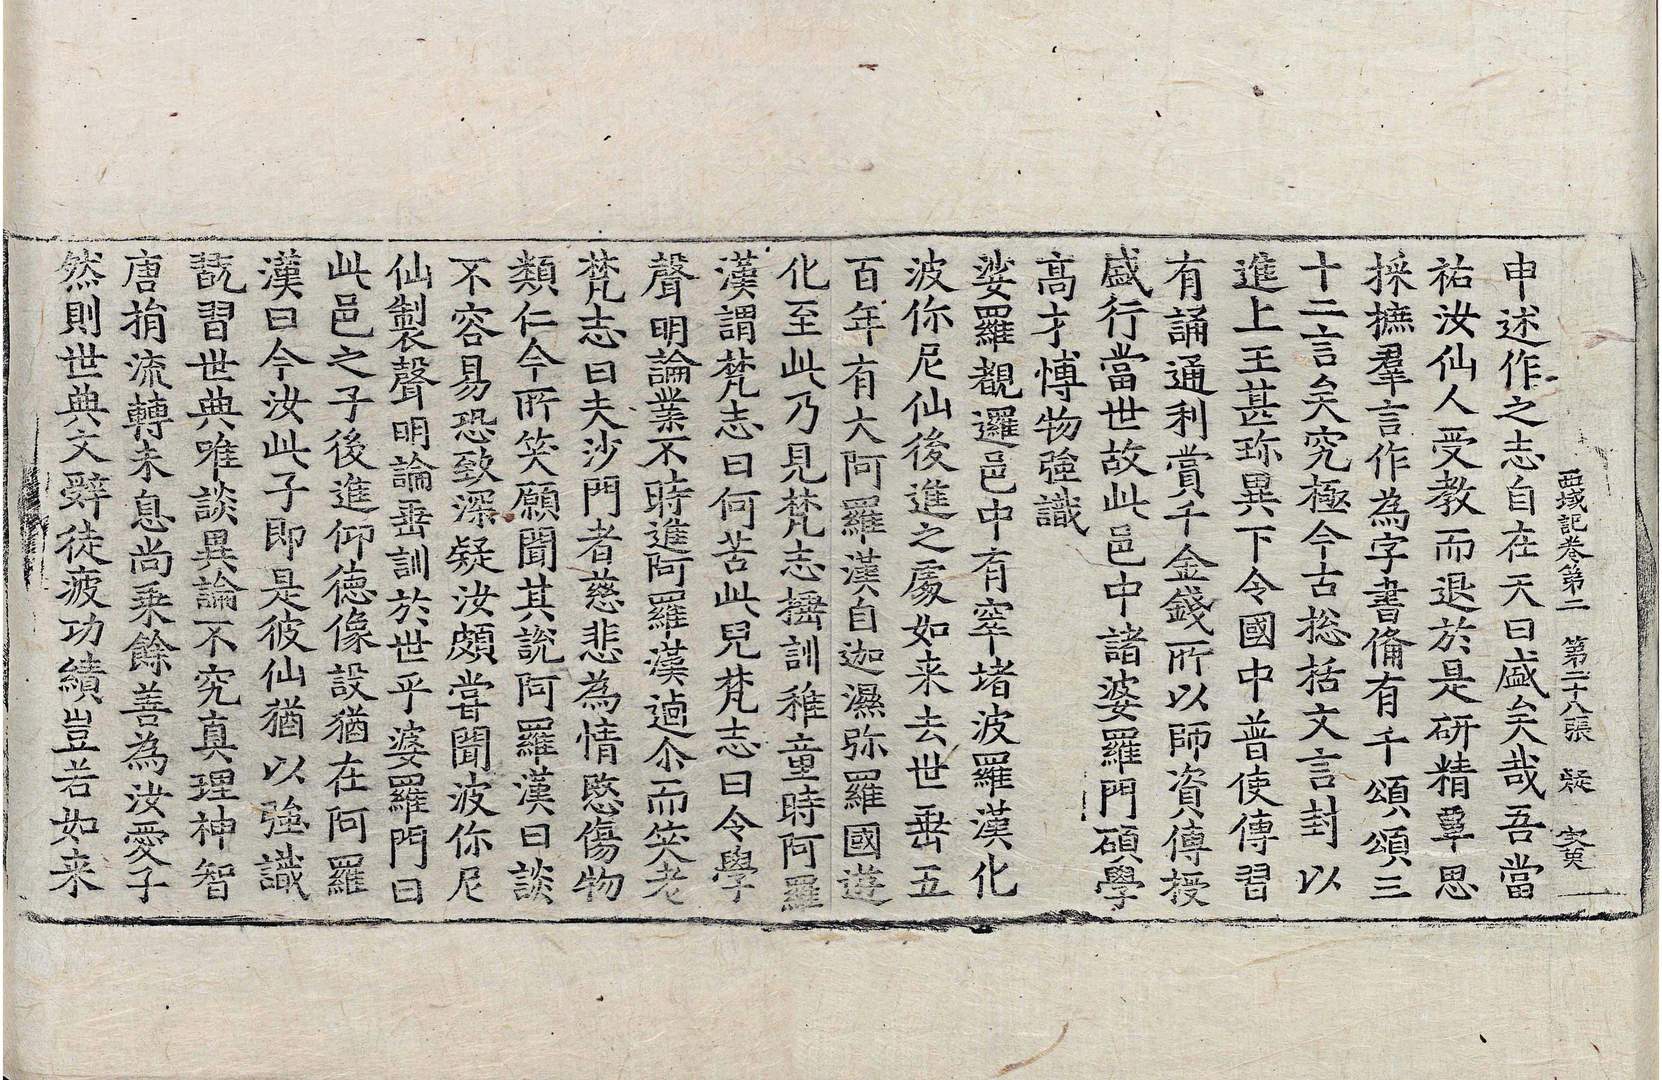 西域記卷第二 第二十八張 疑
申述作之志自在天曰盛矣哉吾當
祐汝仙人受教而退於是研精覃思
採摭羣言作為字書備有千頌頌三
十二言矣究極今古捴括文言封以
進上王甚珎異下令國中普使傳習
有誦通利賞千金錢所以師資傳授
盛行當世故此邑中諸婆羅門碩學
高才博物強識
娑羅覩邏邑中有窣堵波羅漢化
波你尼仙後進之處如来去世垂五
百年有大阿羅漢自迦濕弥羅國遊
化至此乃見梵志捶訓稚童時阿羅
漢謂梵志曰何苦此兒梵志曰令學
聲明論業不時進阿羅漢逌尒而笑老
梵志曰夫沙門者慈悲為情愍傷物
類仁今所笑願聞其說阿羅漢曰談
不容易恐致深疑汝頗甞聞波你尼
仙製聲明論垂訓於世乎婆羅門曰
此邑之子後進仰德像設猶在阿羅
漢曰今汝此子即是彼仙猶以強識
翫習世典唯談異論不究真理神智
唐捐流轉未息尚乗餘善為汝愛子
然則世典文辤徒疲功績豈若如来